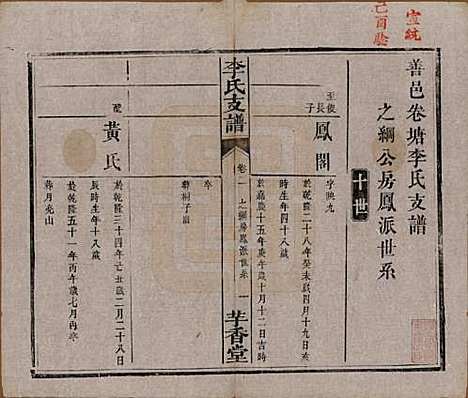 宣統
己酉
善邑卷塘李氏支譜
之綱公房鳳派世系
十世
至俊
長子
鳳閣
字映九
於乾隆二十八年癸未歲四月十九日亥
時生年四十八歲
於嘉慶十五年庚午歲十月十二日吉時
李氏支譜
卷一
之綱房鳳派世系
一
芋香堂
卒
葬桐子嶺
配
黃氏
於乾隆三十四年己丑歲二月二十八日
辰時生年十八歲
於乾隆五十一年丙午歲七月丙卒
葬月亮山